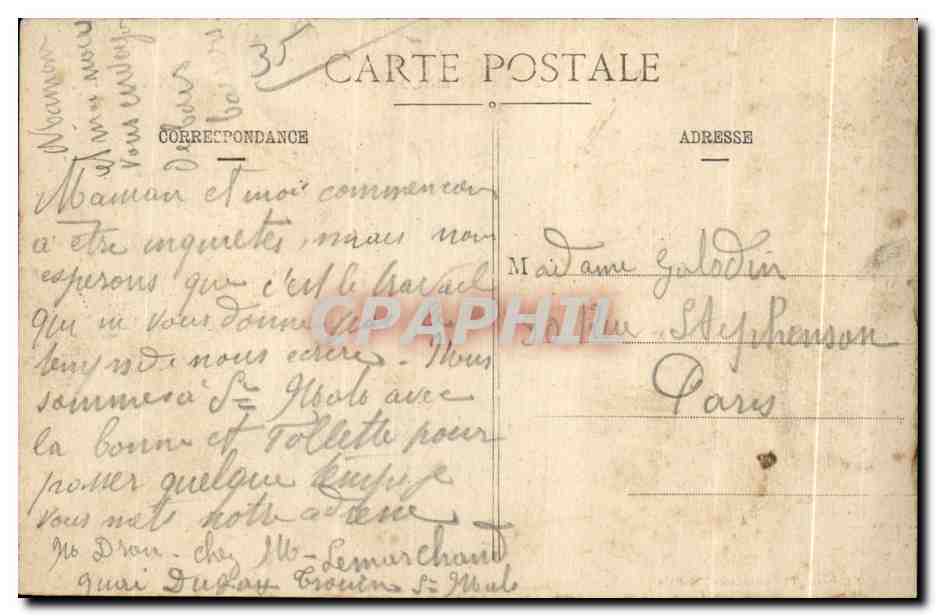 35
CARTE POSTALE
CORRESPONDANCE
ADRESSE
Maman et moi commencon
a être inquietes, mais nous
esperons que c'est le travail
qui ne vous donne pas le
temps de nous ecrire. Nous
sommes à St Malo avec
la bonne et Tollette pour
passer quelque temps je
vous mets notre adresse
M Dron chez M Lemarchand
quai Dugay Trouin St Malo
Maman
et moi nous
vous envoy
de bons
Madame Galodin
Rue Stephenson
Paris
CARTAPHIL